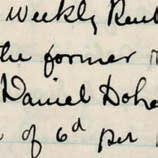 Weekly Rent
the former
Daniel Doh
of 6d per